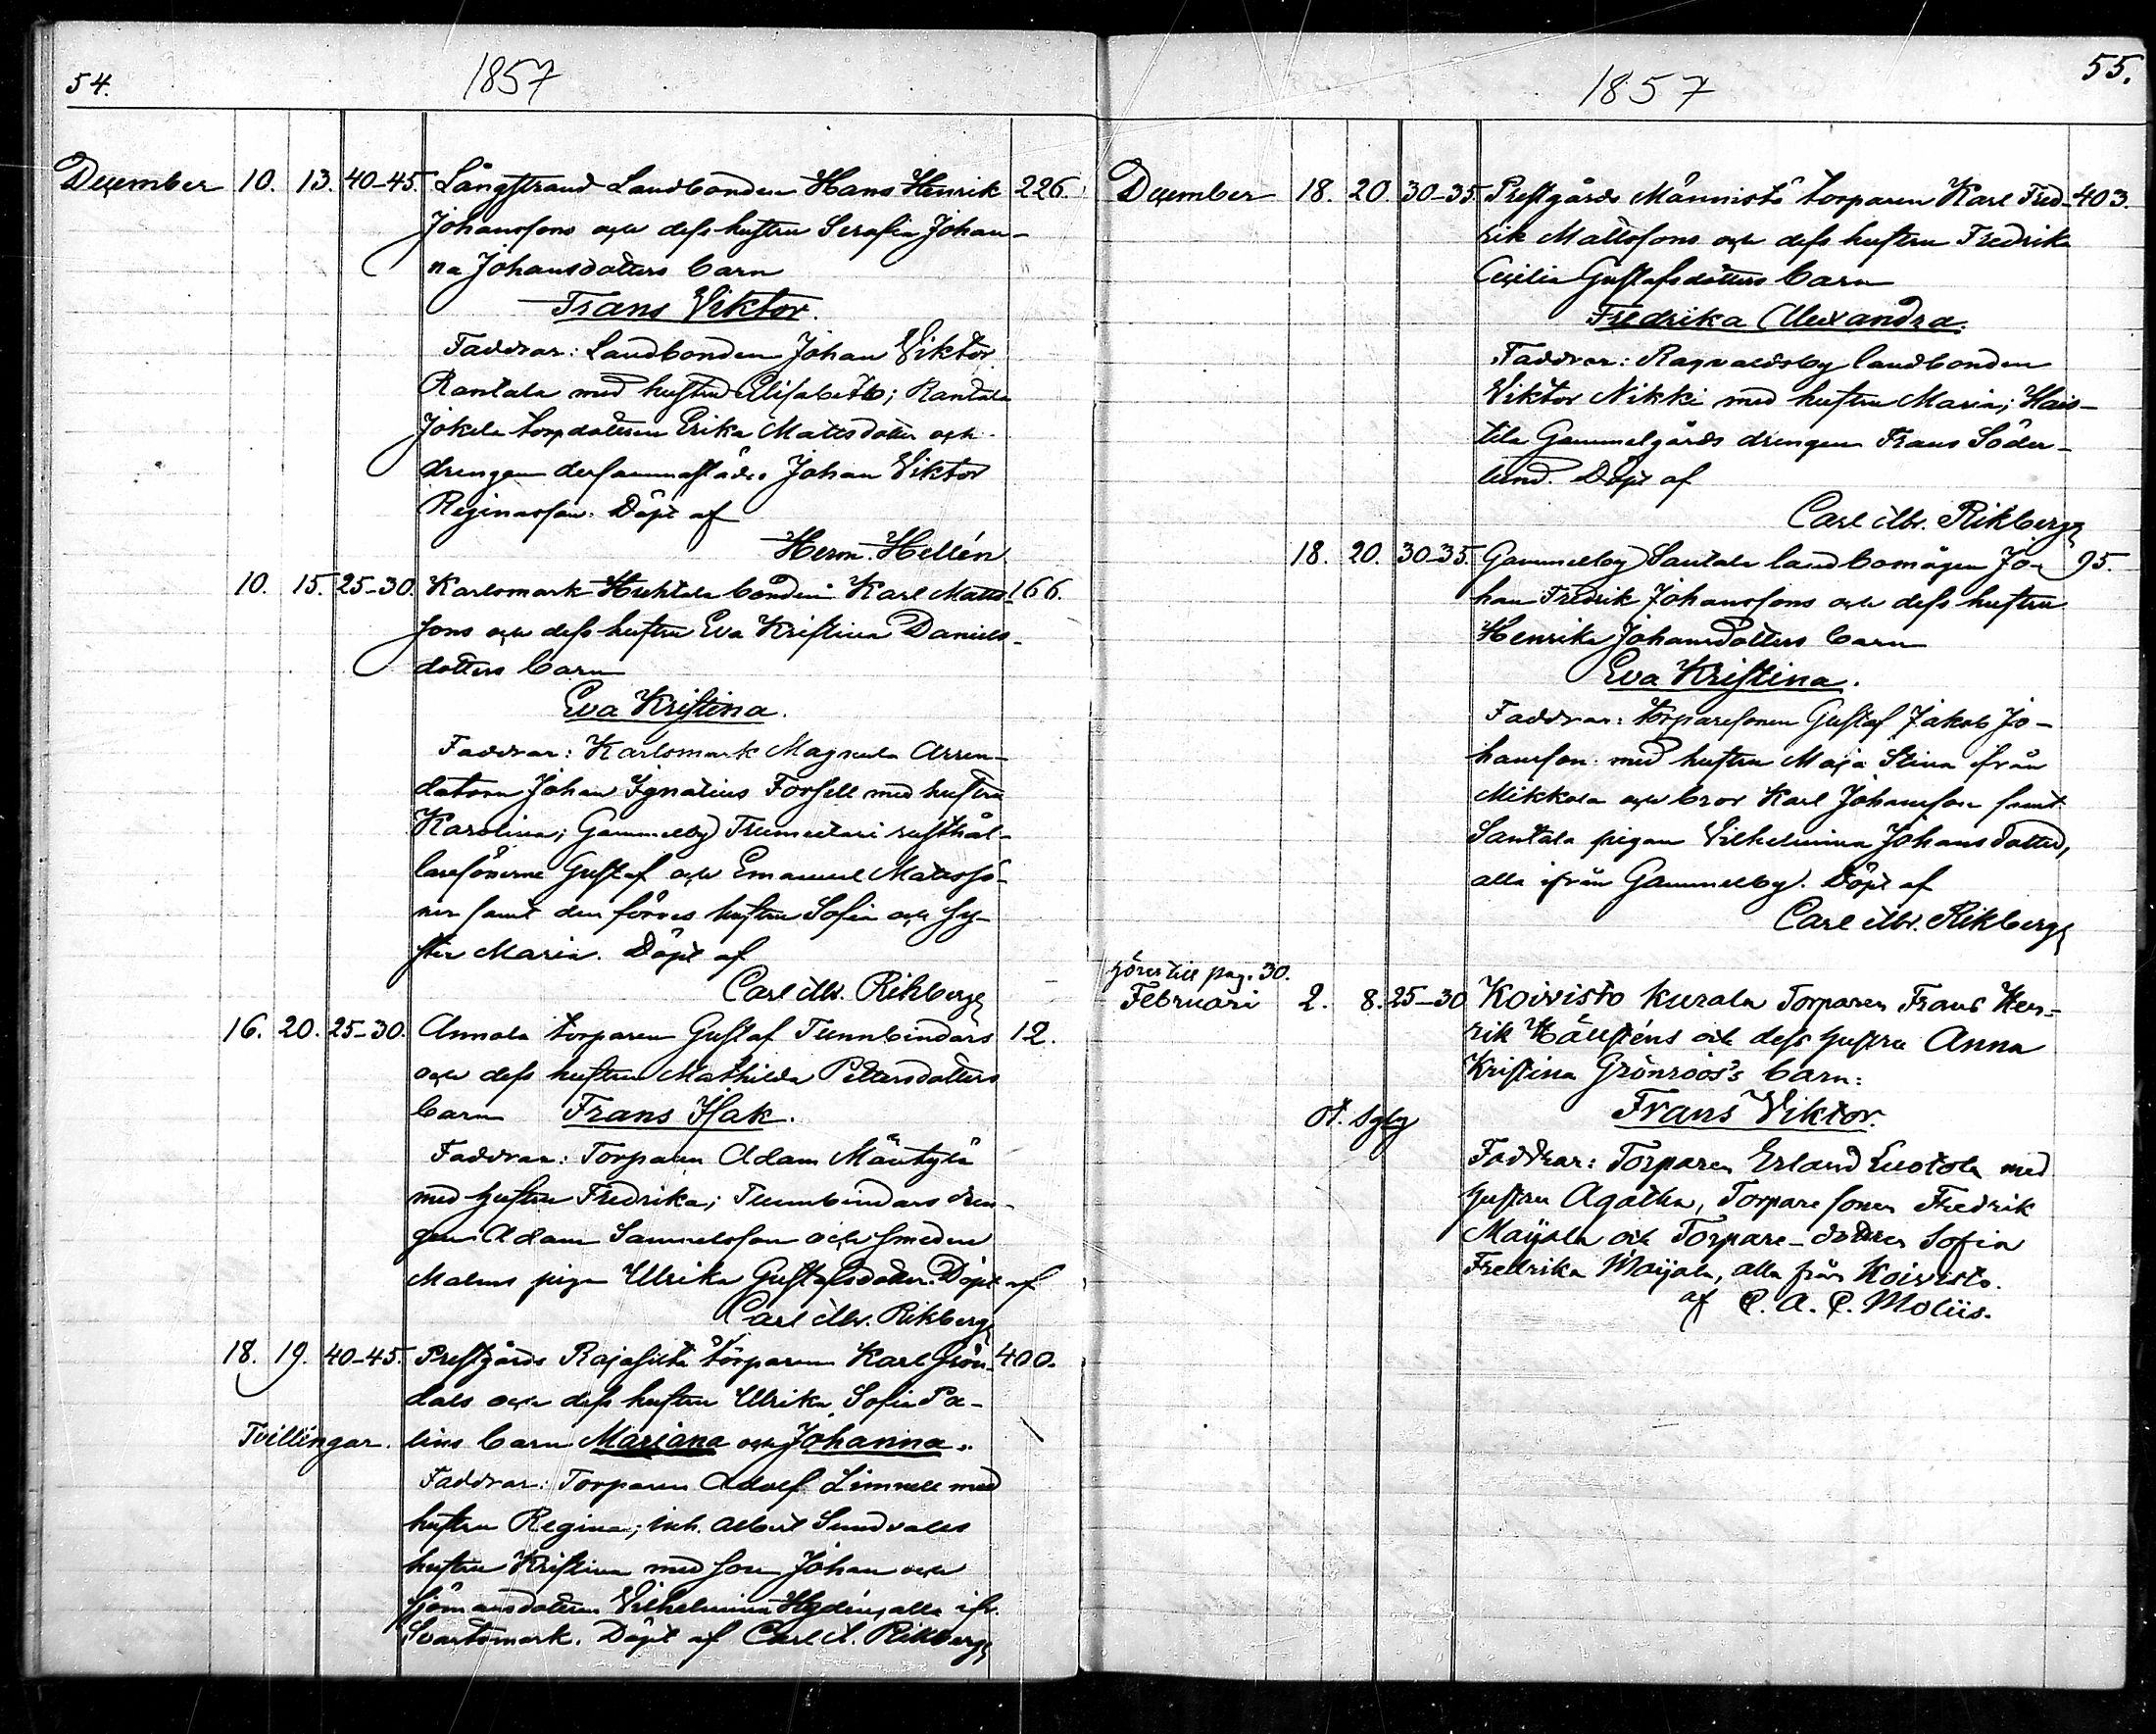 54.
1857
December 10. 13. 40-45. Långstrand Landbonden Hans Henrik 226.
Johanssons och dess hustru Serafia Johan-
na Johansdotters barn
Frans Viktor.
Faddrar: Landbonden Johan Viktor
Rantala med hustru Elisabeth; Rantala
Jokela torpdottern Erika Mattsdotter och
drengen dersammastädes Johan Viktor
Reginasson. Döpt af
Herm. Hellén.
10. 15. 25-30. Karlsmark Huhtala bonden Karl Matts- 166.
sons och dess hustru Eva Kristina Daniels-
dotters barn
Eva Kristina.
Faddrar: Karlsmark Magnula Arren-
datorn Johan Ignatius Forsell med hustru
Karolina; Gammelby Trumetari rusthål-
laresönerne Gustaf och Emanuel Matssö-
ner samt den förres hustru Sofia och sy-
ster Maria. Döpt af
Carl Mr. Rikberg
16. 20. 25-30. Annala torparen Gustaf Tunnbindars 12.
och dess hustru Mathilda Pettersdotters
barn Frans Isak.
Faddrar: Torparen Adam Mäntylä
med hustru Fredrika; Tunnbindars dren-
gen Adam Samuelsson och smeden
Malms piga Ulrika Gustafsdotter. Döpt af
Carl Mr. Rikberg
18. 19. 40-45. Prestgårds Rajasilta torparen Karl Grön- 400.
dals och dess hustru Ulrika Sofia Pa-
Tvillingar. lins barn Mariana och Johanna.
Faddrar: Torparen Adolf Limnell med
hustru Regina; inh. Albert Sundvalls
hustru Kristina med son Johan och
sjömansdottern Vilhelmina Hydén, alla ifr.
Svartsmark. Döpt af Carl A. Rikberg
55.
1857
December 18. 20. 30-35. Prestgårds Männistö torparen Karl Fred- 403.
rik Mattssons och dess hustru Fredrika
Cecilia Gustafsdotters barn
Fredrika Alexandra.
Faddrar: Ragvaldsby landbonden
Viktor Nikki med hustru Maria; Hais-
tila Gammelgårds drengen Frans Söder-
lund. Döpt af
Carl Mr. Rikberg
18. 20. 30-35. Gammelby Santala landbomågen Jo- 95.
han Fredrik Johanssons och dess hustru
Henrika Johansdotters barn
Eva Kristina.
Faddrar: torparesonen Gustaf Jakob Jo-
hansson med hustru Maja Stina ifrån
Mikkola och bror Karl Johansson samt
Santala pigan Vilhelmina Johansdotter,
alla ifrån Gammelby. Döpt af
Carl Mr. Rikberg
hörer till pag. 30.
Februari 2. 8. 25-30 Koivisto Kurala Torparen Frans Hen-
rik Hällsténs och dess hustru Anna
Kristina Grönroos's barn:
Frans Viktor.
Faddrar: Torparen Erland Luotola med
hustru Agatha, Torparesonen Fredrik
Maijala och Torpare-dottren Sofia
Fredrika Maijala, alla från Koivisto.
af C. A. P. Moliis.